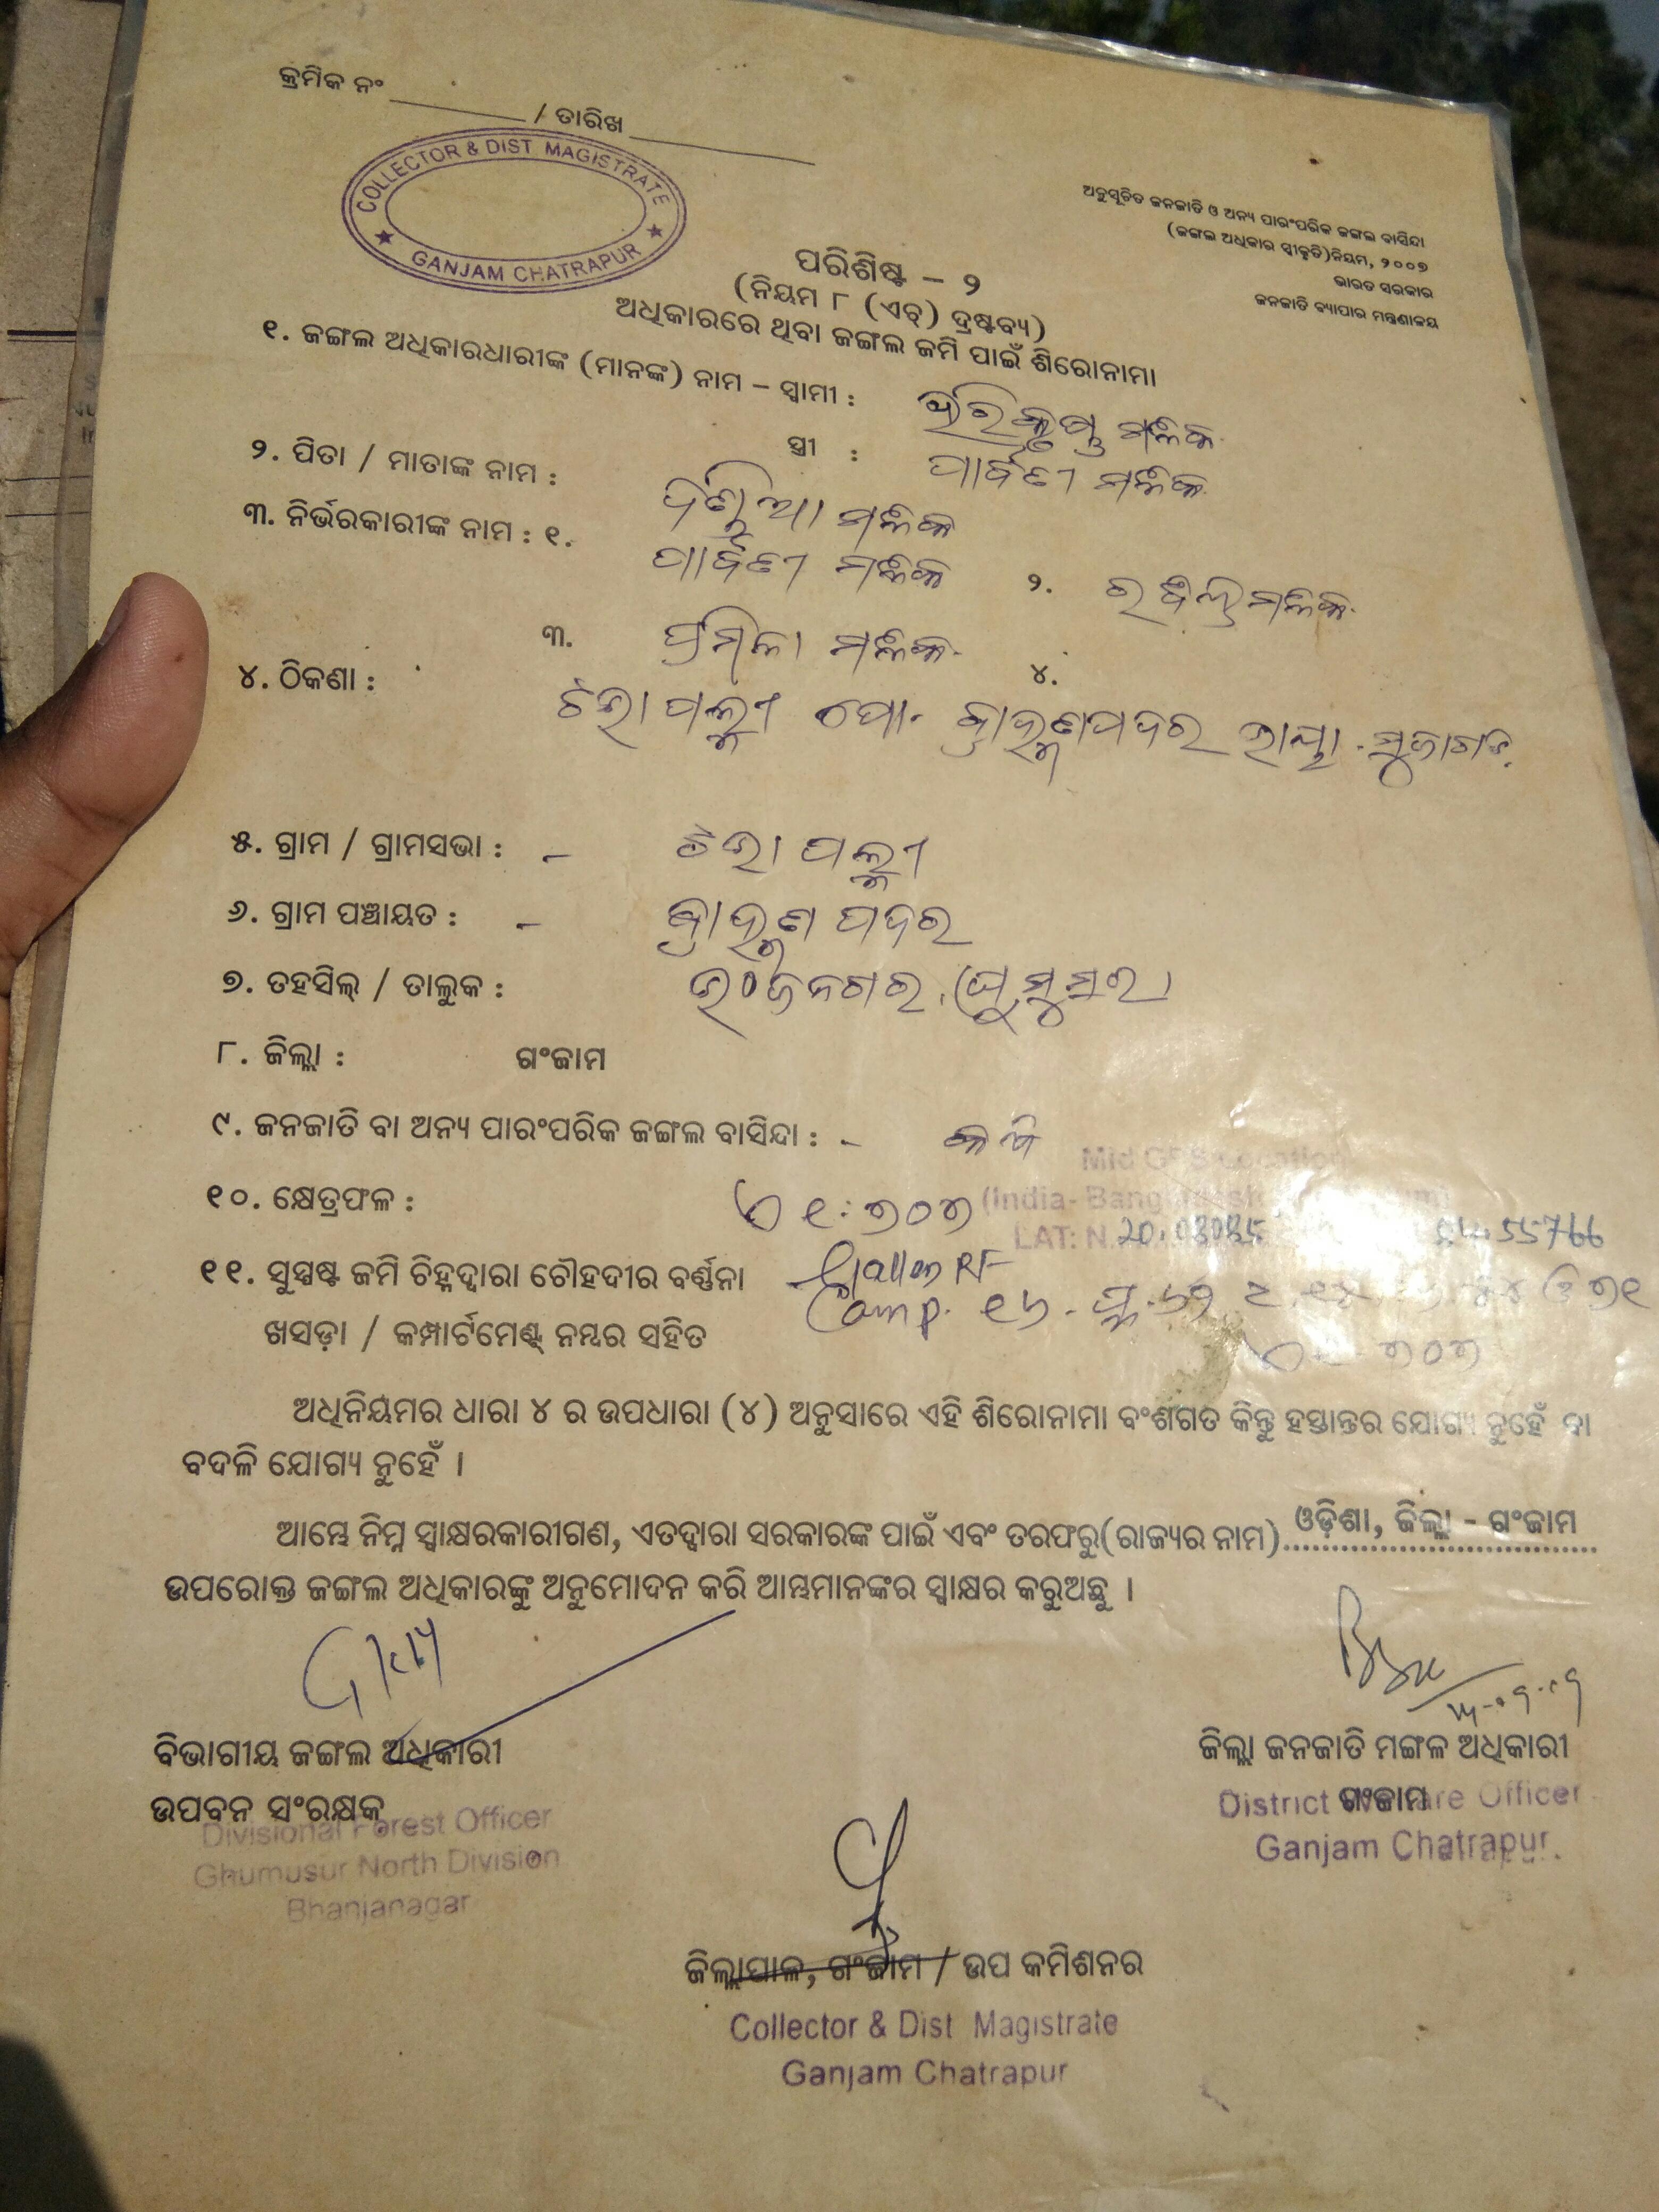 କ୍ରମିକ ନଂ / ତାରିଖ
COLLECTOR & DIST MAGISTRATE
GANJAM CHATRAPUR
ଅନୁସୂଚିତ ଜନଜାତି ଓ ଅନ୍ୟ ପାରଂପରିକ ଜଙ୍ଗଲ ବାସିନ୍ଦା
(ଜଙ୍ଗଲ ଅଧିକାର ସ୍ୱୀକୃତି)ନିୟମ, ୨୦୦୭
ଭାରତ ସରକାର
ଜନଜାତି ବ୍ୟାପାର ମନ୍ତ୍ରଣାଳୟ
ପରିଶିଷ୍ଟ – ୨
(ନିୟମ ୮ (ଏଚ୍) ଦ୍ରଷ୍ଟବ୍ୟ)
ଅଧିକାରରେ ଥିବା ଜଙ୍ଗଲ ଜମି ପାଇଁ ଶିରୋନାମା
୧. ଜଙ୍ଗଲ ଅଧିକାରଧାରୀଙ୍କ (ମାନଙ୍କ) ନାମ – ସ୍ୱାମୀ : ମଲିକ
ସ୍ତ୍ରୀ : ପାର୍ବତୀ ମଲିକ
୨. ପିତା / ମାତାଙ୍କ ନାମ : ମଲିକ
୩. ନିର୍ଭରକାରୀଙ୍କ ନାମ : ୧. ପାର୍ବତୀ ମଲିକ ୨. ମଲିକ
୩. ପ୍ରମିଳା ମଲିକ ୪.
୪. ଠିକଣା : ପୋ. ବ୍ରାହ୍ମଣପଦର ଭାୟା. ମୁଜାଗଡ଼
୫. ଗ୍ରାମ / ଗ୍ରାମସଭା : –
୬. ଗ୍ରାମ ପଞ୍ଚାୟତ : – ବ୍ରାହ୍ମଣ ପଦର
୭. ତହସିଲ୍ / ତାଲୁକ : ଭଂଜନଗର (ଘୁମୁସର)
୮. ଜିଲ୍ଲା : ଗଂଜାମ
୯. ଜନଜାତି ବା ଅନ୍ୟ ପାରଂପରିକ ଜଙ୍ଗଲ ବାସିନ୍ଦା : – କନ୍ଧ
Mid GPS Location
୧୦. କ୍ଷେତ୍ରଫଳ : ଏ ୧.୭୦୭
(India- Bangladesh
LAT: N. 55766
୧୧. ସୁସ୍ପଷ୍ଟ ଜମି ଚିହ୍ନଦ୍ୱାରା ଚୌହଦୀର ବର୍ଣ୍ଣନା RF
ଖସଡ଼ା / କମ୍ପାର୍ଟମେଣ୍ଟ୍ ନମ୍ବର ସହିତ Comp. ୧୬
ଅଧିନିୟମର ଧାରା ୪ ର ଉପଧାରା (୪) ଅନୁସାରେ ଏହି ଶିରୋନାମା ବଂଶଗତ କିନ୍ତୁ ହସ୍ତାନ୍ତର ଯୋଗ୍ୟ ନୁହେଁ ବା
ବଦଳି ଯୋଗ୍ୟ ନୁହେଁ ।
ଆମ୍ଭେ ନିମ୍ନ ସ୍ୱାକ୍ଷରକାରୀଗଣ, ଏତଦ୍ୱାରା ସରକାରଙ୍କ ପାଇଁ ଏବଂ ତରଫରୁ(ରାଜ୍ୟର ନାମ) ଓଡ଼ିଶା, ଜିଲ୍ଲା - ଗଂଜାମ
ଉପରୋକ୍ତ ଜଙ୍ଗଲ ଅଧିକାରଙ୍କୁ ଅନୁମୋଦନ କରି ଆମ୍ଭମାନଙ୍କର ସ୍ୱାକ୍ଷର କରୁଅଛୁ ।
ବିଭାଗୀୟ ଜଙ୍ଗଲ ଅଧିକାରୀ
ଉପବନ ସଂରକ୍ଷକ
Divisional Forest Officer
Ghumusur North Division
Bhanjanagar
ଜିଲ୍ଲା ଜନଜାତି ମଙ୍ଗଳ ଅଧିକାରୀ
ଗଂଜାମ
District Welfare Officer
Ganjam Chatrapur.
ଜିଲ୍ଲାପାଳ, ଗଂଜାମ / ଉପ କମିଶନର
Collector & Dist Magistrate
Ganjam Chatrapur